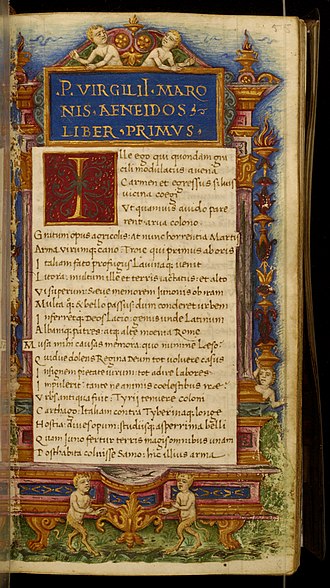 P. VIRGILII MARO
NIS AENEIDOS
LIBER PRIMVS
Ille ego qui quondam gra
cili modulatus auena
Carmen et egressus siluis
uicina coegi
Vt quamuis auido pare
rent arua colono
Gratum opus agricolis: At nunc horrentia Martis
Arma uirumque cano: Troie qui primus ab oris
Italiam fato profugus Lauinaque uenit
Litora. multum ille et terris iactatus: et alto
Vi superum: Seue memorem Iunonis ob iram
Multa quoque & bello passus dum conderet urbem
Inferretque Deos Latio: genus unde Latinum
Albanique patres: atque alte moenia Rome
Musa mihi causas memora: quo numine Leso:
Quidue dolens Regina Deum tot uoluere casus
Insignem pietate uirum: tot adire labores
Impulerit: tante ne animis coelestibus irae:
Vrbs antiqua fuit: Tyrii tenuere coloni
Carthago: Italiam contra Tyberinaque longe
Hostia: diues opum: studiisque asperrima belli
Quam Iuno fertur terris magis omnibus unam
Posthabita coluisse Samo: hic illius arma